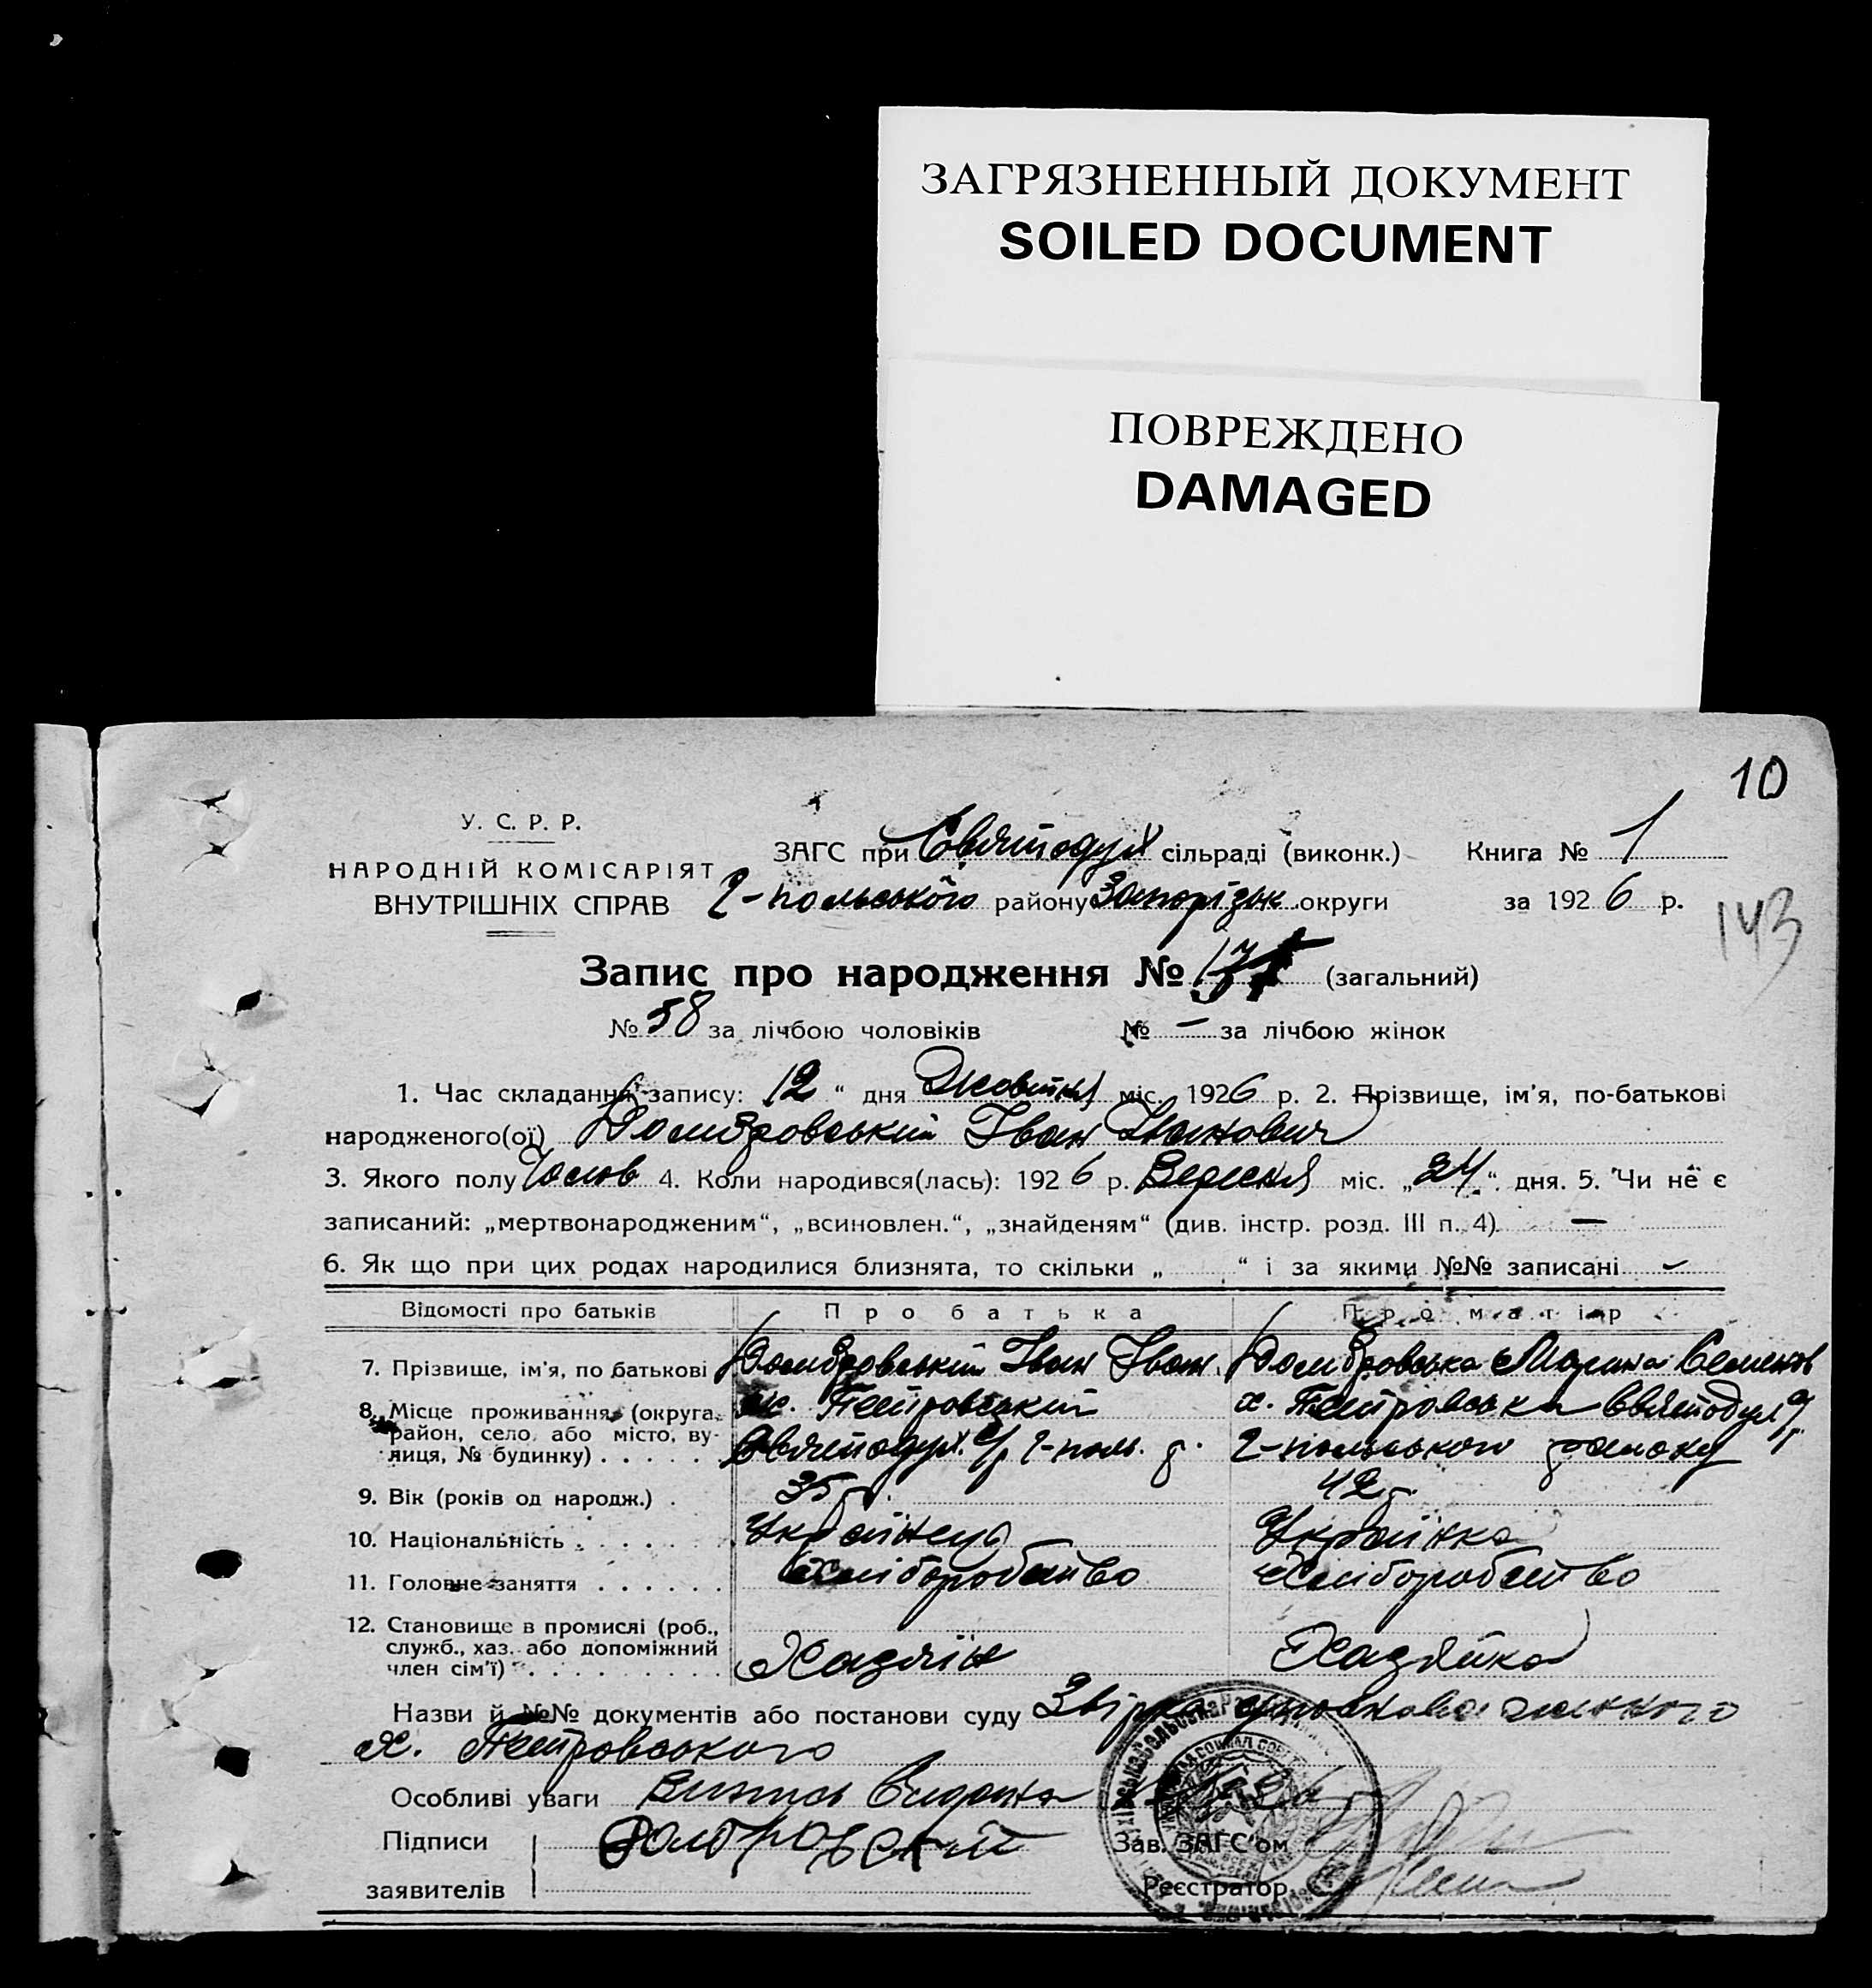 ЗАГРЯЗНЕННЫЙ ДОКУМЕНТ
SOILED DOCUMENT
ПОВРЕЖДЕНО
DAMAGED
10
У. С. Р. Р.
НАРОДНІЙ КОМІСАРІЯТ
ВНУТРІШНІХ СПРАВ
ЗАГС при Святодух сільраді (виконк.) Книга № 1
2-польського району Запорізьк округи за 1926 р.
143
Запис про народження № (загальний)
№ 58 за лічбою чоловіків № — за лічбою жінок
1. Час складання запису: 12 “ дня Жовтня міс. 1926 р. 2. Прізвище, ім'я, по-батькові
народженого(ої) Домбровський Іван Іванович
3. Якого полу Чолов 4. Коли народився(лась): 1926 р. Вересня міс. „24“ дня. 5. Чи не є
записаний: „мертвонародженим“, „всиновлен.“, „знайденям“ (див. інстр. розд. III п. 4) —
6. Як що при цих родах народилися близнята, то скільки „ “ і за якими №№ записані —
Відомості про батьків Про батька Про матір
7. Прізвище, ім'я, по батькові Домбровський Іван Іван. Домбровська Марина Семенов
8. Місце проживання (округа, х. Петровський х. Петровська Святодух с/р
район, село або місто, вулиця, № будинку) Святодух. с/р 2-поль. р. 2-польського району
9. Вік (років од народж.) 35 р. 42 р.
10. Національність Українець Українка
11. Головне заняття Хліборобство Хліборобство
12. Становище в промислі (роб.,
служб., хаз. або допоміжний
член сім'ї) Хазяїн Хазяйка
Назви й №№ документів або постанови суду
х. Петровського
Особливі уваги Випись видана
Підписи Домбровский Зав. ЗАГС'ом
заявителів Реєстратор